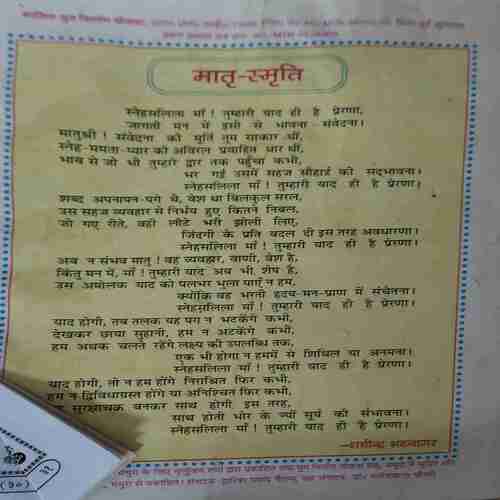 मातृ-स्मृति
स्नेहसलिला माँ ! तुम्हारी याद ही है प्रेरणा,
जागती मन में इसी से भावना - संवेदना।
मातुश्री ! संवेदना की मूर्ति तुम साकार थीं,
स्नेह-ममता-प्यार की अविरल प्रवाहित धार थीं,
भाव से जो भी तुम्हारे द्वार तक पहुँचा कभी,
भर गई उसमें सहज सौहार्द की सद्भावना।
स्नेहसलिला माँ ! तुम्हारी याद ही है प्रेरणा।
शब्द अपनापन पगे थे, वेश था बिलकुल सरल,
उस सहज व्यवहार से निर्भय हुए कितने निबल,
जो गए रीते, वही लौटे भरी झोली लिए,
जिंदगी के प्रति बदल दी इस तरह अवधारणा।
स्नेहसलिला माँ ! तुम्हारी याद ही है प्रेरणा।
अब न संभव मातृ ! वह व्यवहार, वाणी, वेश है,
किंतु मन में, माँ ! तुम्हारी याद अब भी शेष है,
उस अमोलक याद को पलभर भुला पाएँ न हम,
क्योंकि वह भरती हृदय-मन-प्राण में संचेतना।
स्नेहसलिला माँ ! तुम्हारी याद ही है प्रेरणा।
याद होगी, तब तलक यह पग न भटकेंगे कभी,
देखकर छाया सुहानी, हम न अटकेंगे कभी,
हम अथक चलते रहेंगे लक्ष्य की उपलब्धि तक,
एक भी होगा न हममें से शिथिल या अनमना।
स्नेहसलिला माँ ! तुम्हारी याद ही है प्रेरणा।
याद होगी, तो न हम होंगे निराश्रित फिर कभी,
हम न द्विविधाग्रस्त होंगे या अनिश्चित फिर कभी,
सुरक्षाचक्र बनकर साथ होगी इस तरह,
साथ होती भोर के ज्यों सूर्य की संभावना।
स्नेहसलिला माँ ! तुम्हारी याद ही है प्रेरणा।
—शचीन्द्र भटनागर